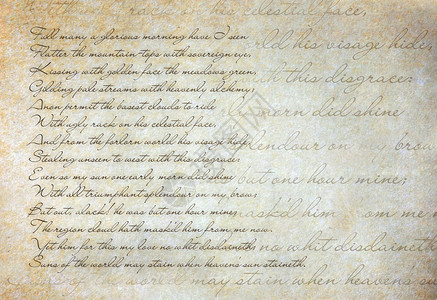 Full many a glorious morning have I seen
Flatter the mountain-tops with sovereign eye,
Kissing with golden face the meadows green,
Gilding pale streams with heavenly alchemy;
Anon permit the basest clouds to ride
With ugly rack on his celestial face,
And from the forlorn world his visage hide,
Stealing unseen to west with this disgrace:
Even so my sun one early morn did shine
With all triumphant splendour on my brow;
But out, alack! he was but one hour mine;
The region cloud hath mask'd him from me now.
Yet him for this my love no whit disdaineth;
Suns of the world may stain when heavens sun staineth.
on his celestial face,
world his visage hide,
this disgrace:
morn did shine
on my brow
but one hour mine;
him from me
no whit disdaineth
of the world may stain when heavens sun